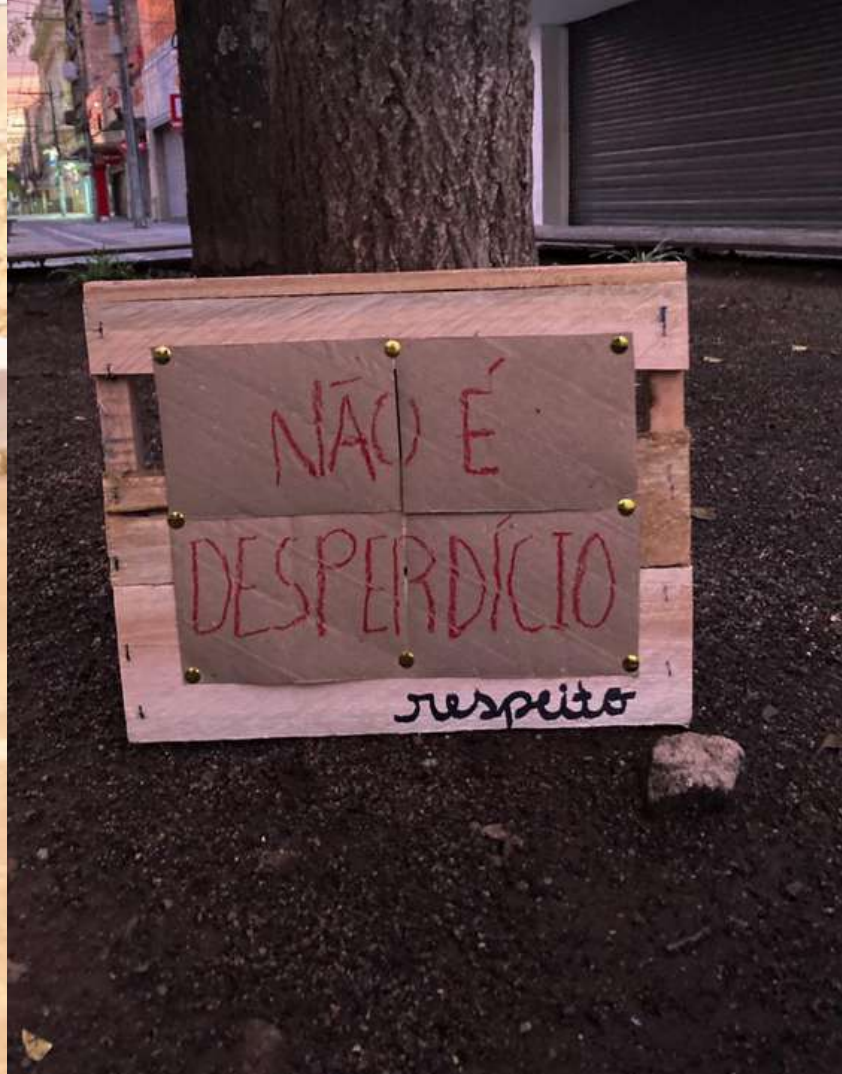 NÃO É
DESPERDÍCIO
respeito